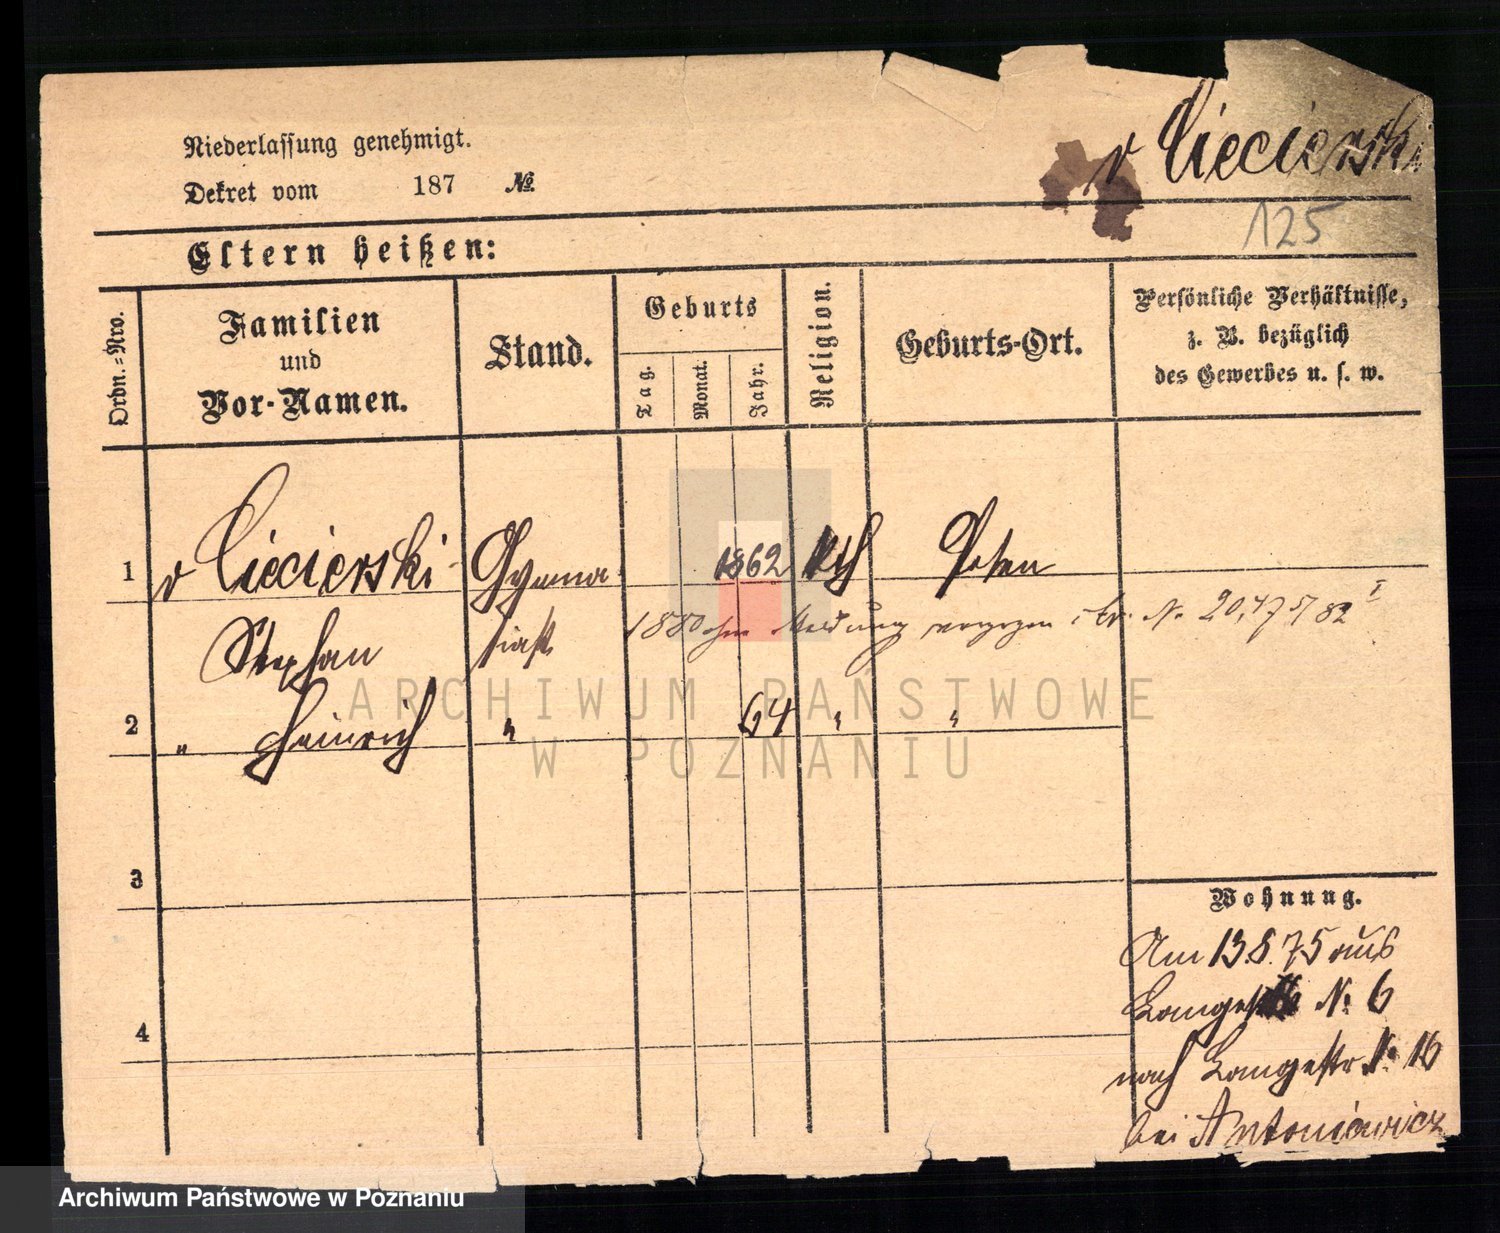 v Ciecierski
Niederlassung genehmigt.
Dekret vom 187 №
125
Eltern heißen:
Ordn.-Nro.
Familien
und
Vor-Namen.
Stand.
Geburts
Tag.
Monat.
Jahr.
Religion.
Geburts-Ort.
Persönliche Verhältnisse,
z. B. bezüglich
des Gewerbes u. s. w.
1 v Ciecierski Gymna 1862 kth Posen
Stephan siast 1880 ohne Meldung verzogen 82
2 " Heinrich " 64 " "
3
4
Wohnung.
Am 13.8.75 aus
Langestr № 6
nach Langestr № 16
bei Antoniewicz
ARCHIWUM PAŃSTWOWE
W POZNANIU
Archiwum Państwowe w Poznaniu